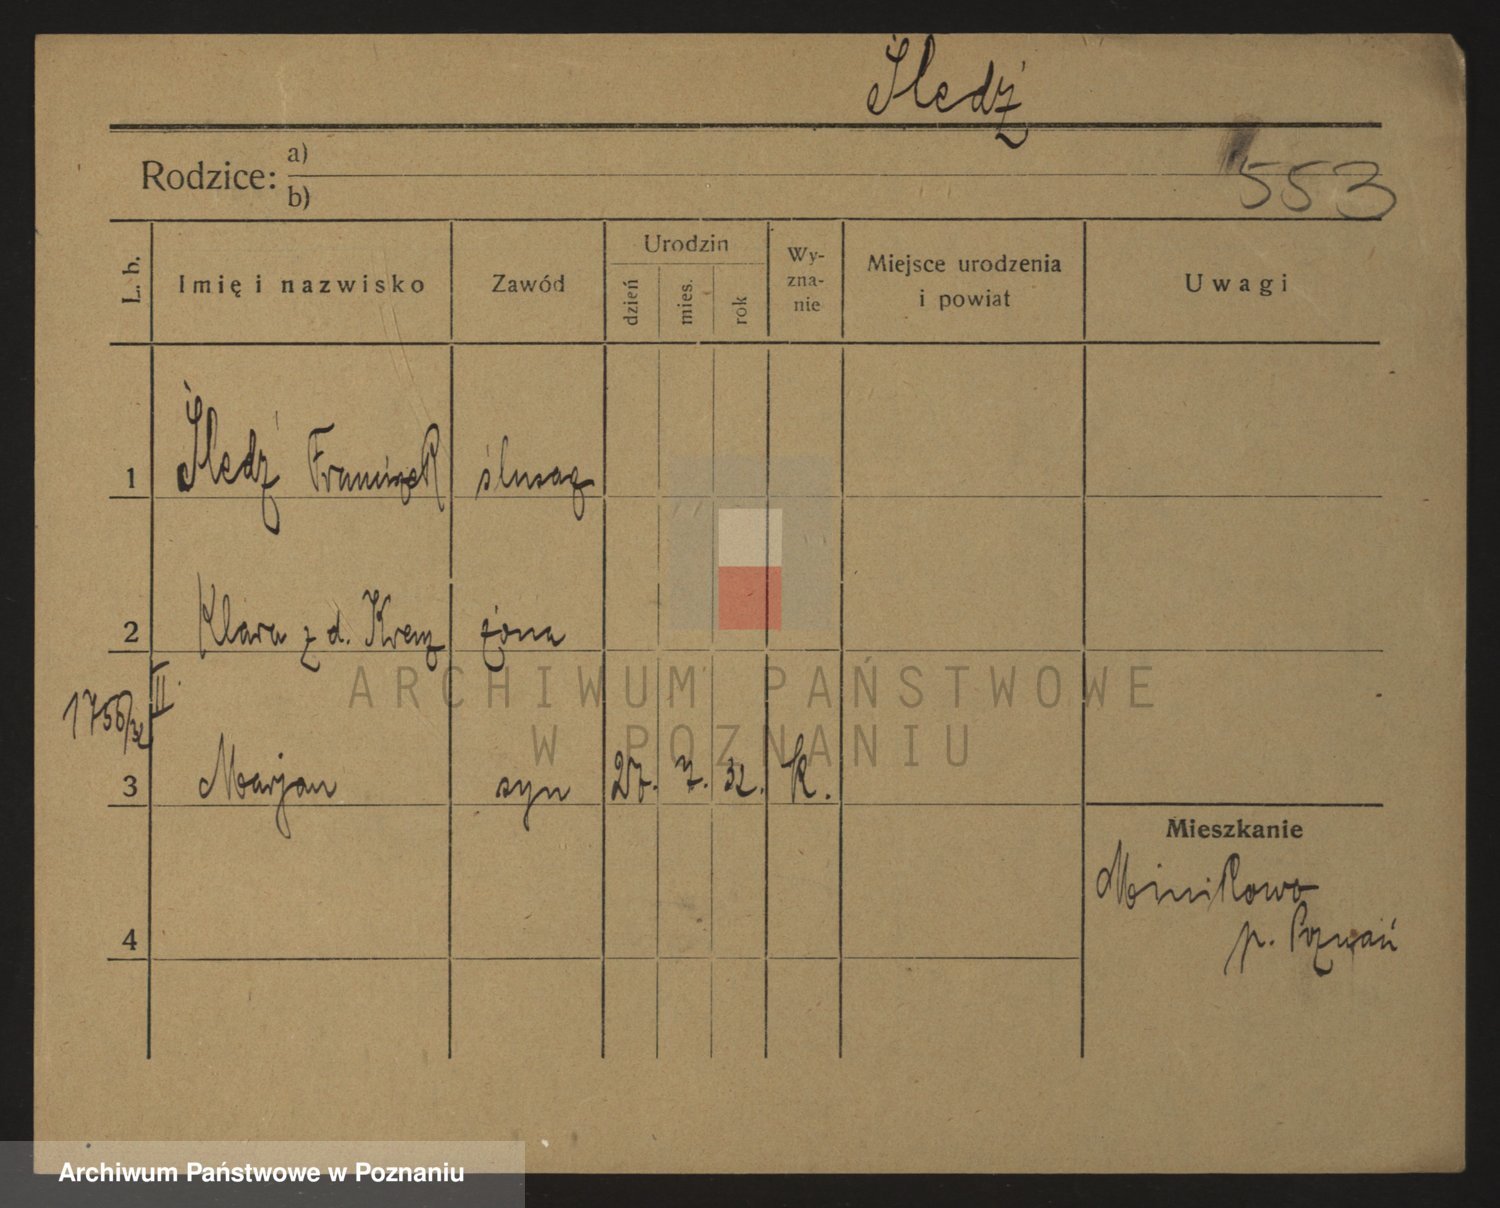 Śledź
Rodzice: a)
b)
553
L. b. Imię i nazwisko Zawód Urodzin dzień mies. rok Wy-zna-nie Miejsce urodzenia i powiat Uwagi
1 Śledź Franciszek ślusarz
2 Klara z d. Krenz żona
1756/32 III
3 Marjan syn 27. 7. 32. k.
Mieszkanie
Minikowo
p. Poznań
4
ARCHIWUM PAŃSTWOWE
W POZNANIU
Archiwum Państwowe w Poznaniu